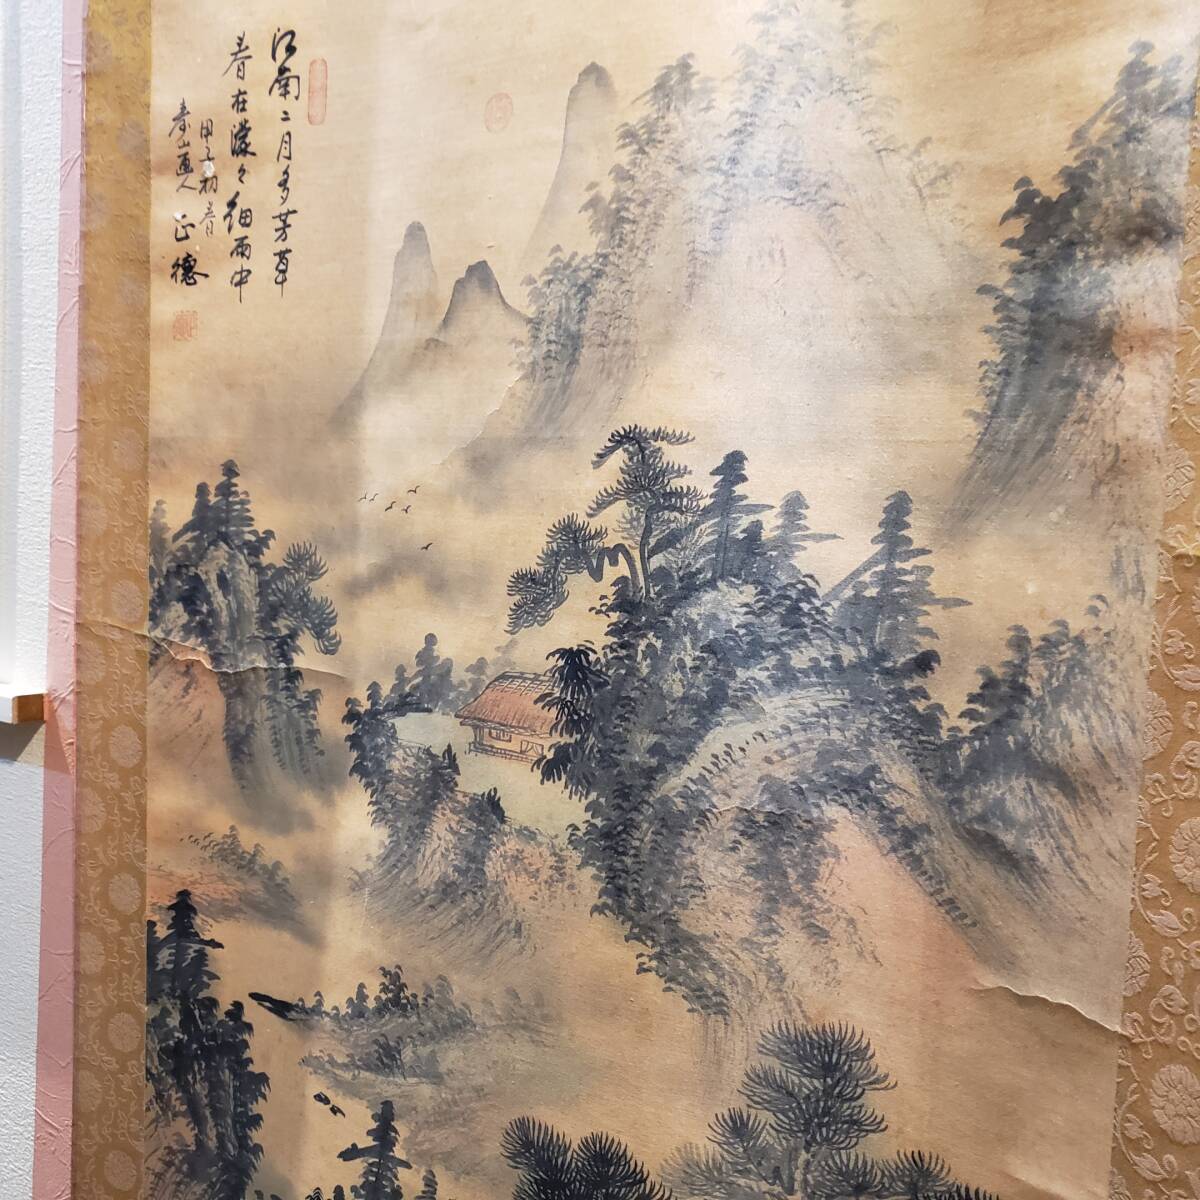 江南二月多芳草
春在濛々細雨中
甲子初春
寿山画人 正德